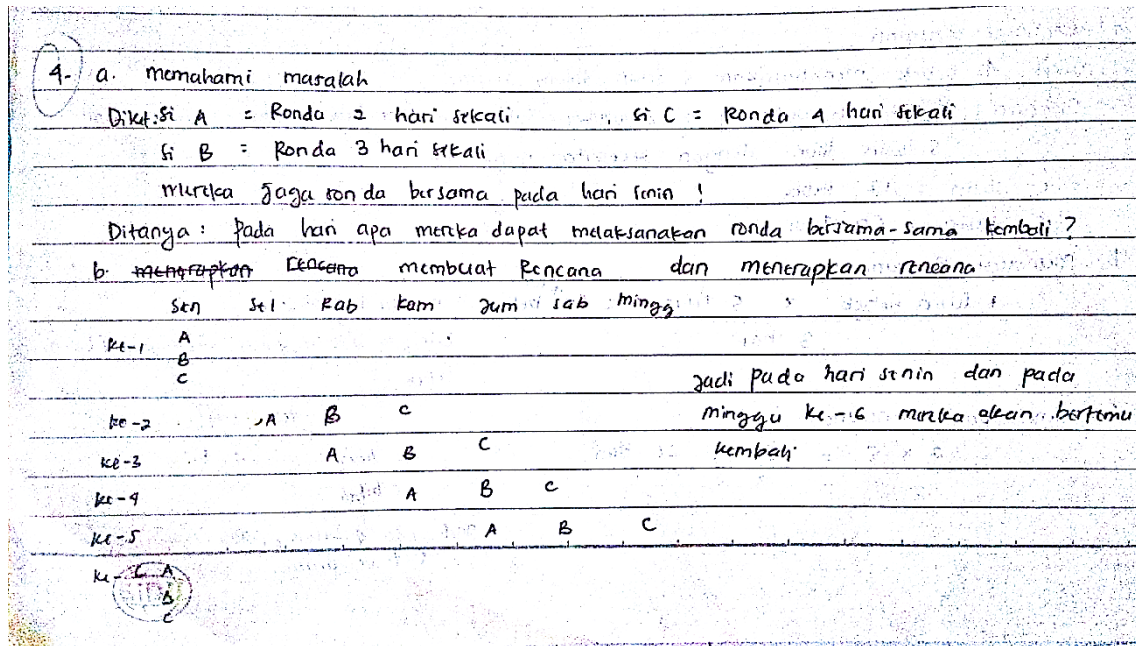 4. a. memahami masalah
Diket: Si A = Ronda 2 hari sekali Si C = Ronda 4 hari sekali
Si B = Ronda 3 hari sekali
mereka Jaga ronda bersama pada hari senin !
Ditanya : pada hari apa mereka dapat melaksanakan ronda bersama-sama kembali ?
b. menerapkan rencana membuat Rencana dan menerapkan rencana
Sen Sel Rab Kam Jum Sab Mingg
ke-1 A
B
C
Jadi pada hari senin dan pada
ke-2 A B C minggu ke-6 mereka akan bertemu
ke-3 A B C kembali
ke-4 A B C
ke-5 A B C
ke-6 A
B
C